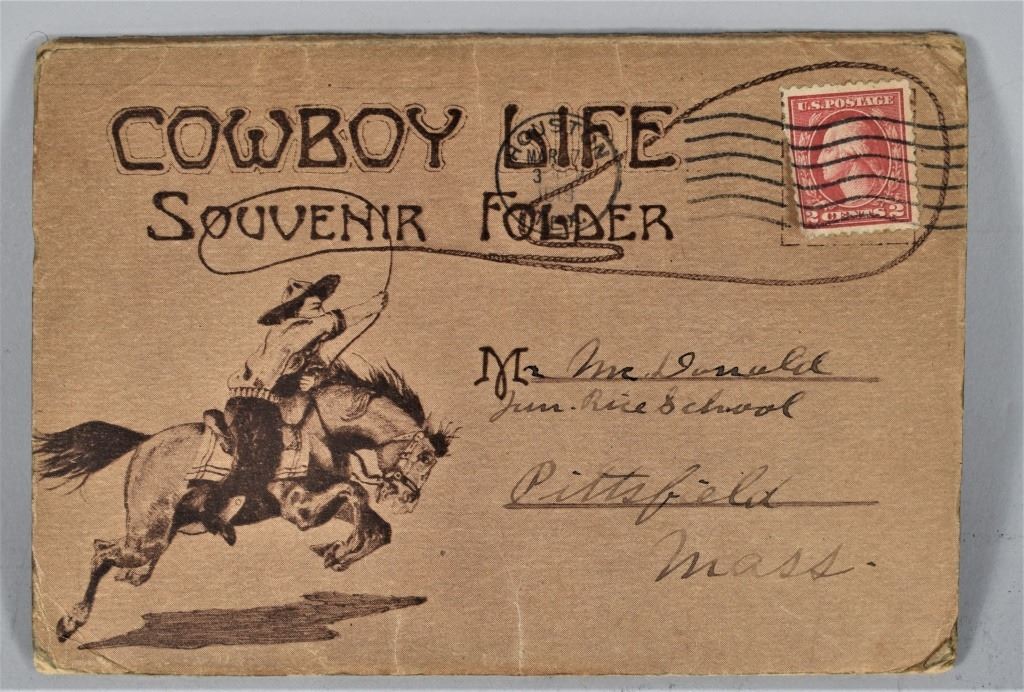 COWBOY LIFE
SOUVENIR FOLDER
U.S. POSTAGE
2 CENTS 2
HOUSTON
MAR
3
Mr Mc Donald
Jun. Rice School
Pittsfield
Mass.